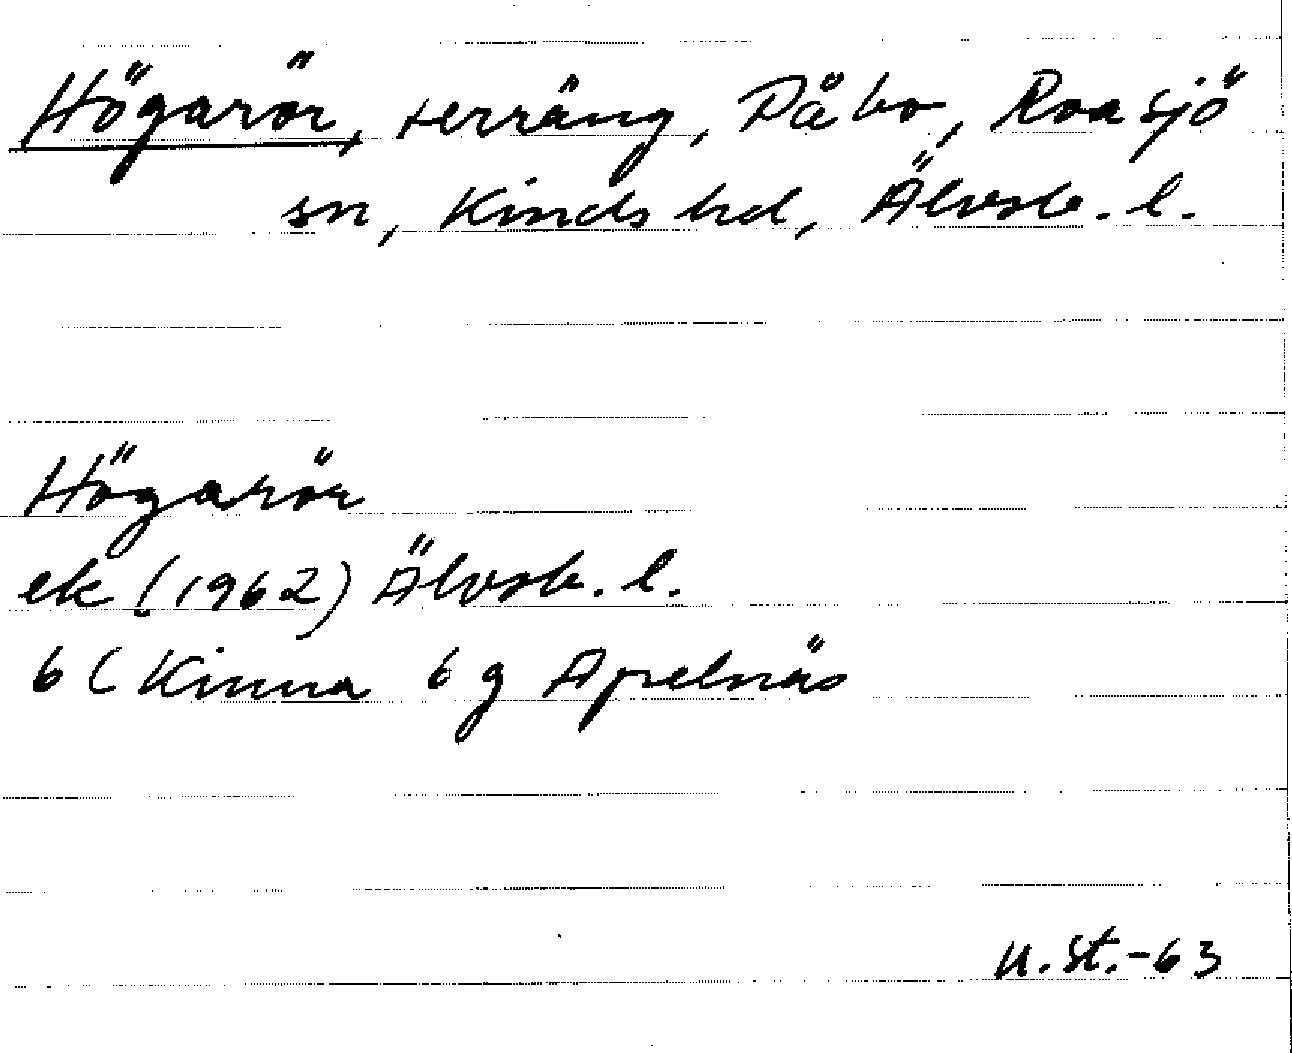 Högarör, terräng, Påbo, Roasjö
sn, Kinds hd, Älvsb. l.
Högarör
ek (1962) Älvsb. l.
6 C Kinna 6 g Apelnäs
u. St.-63